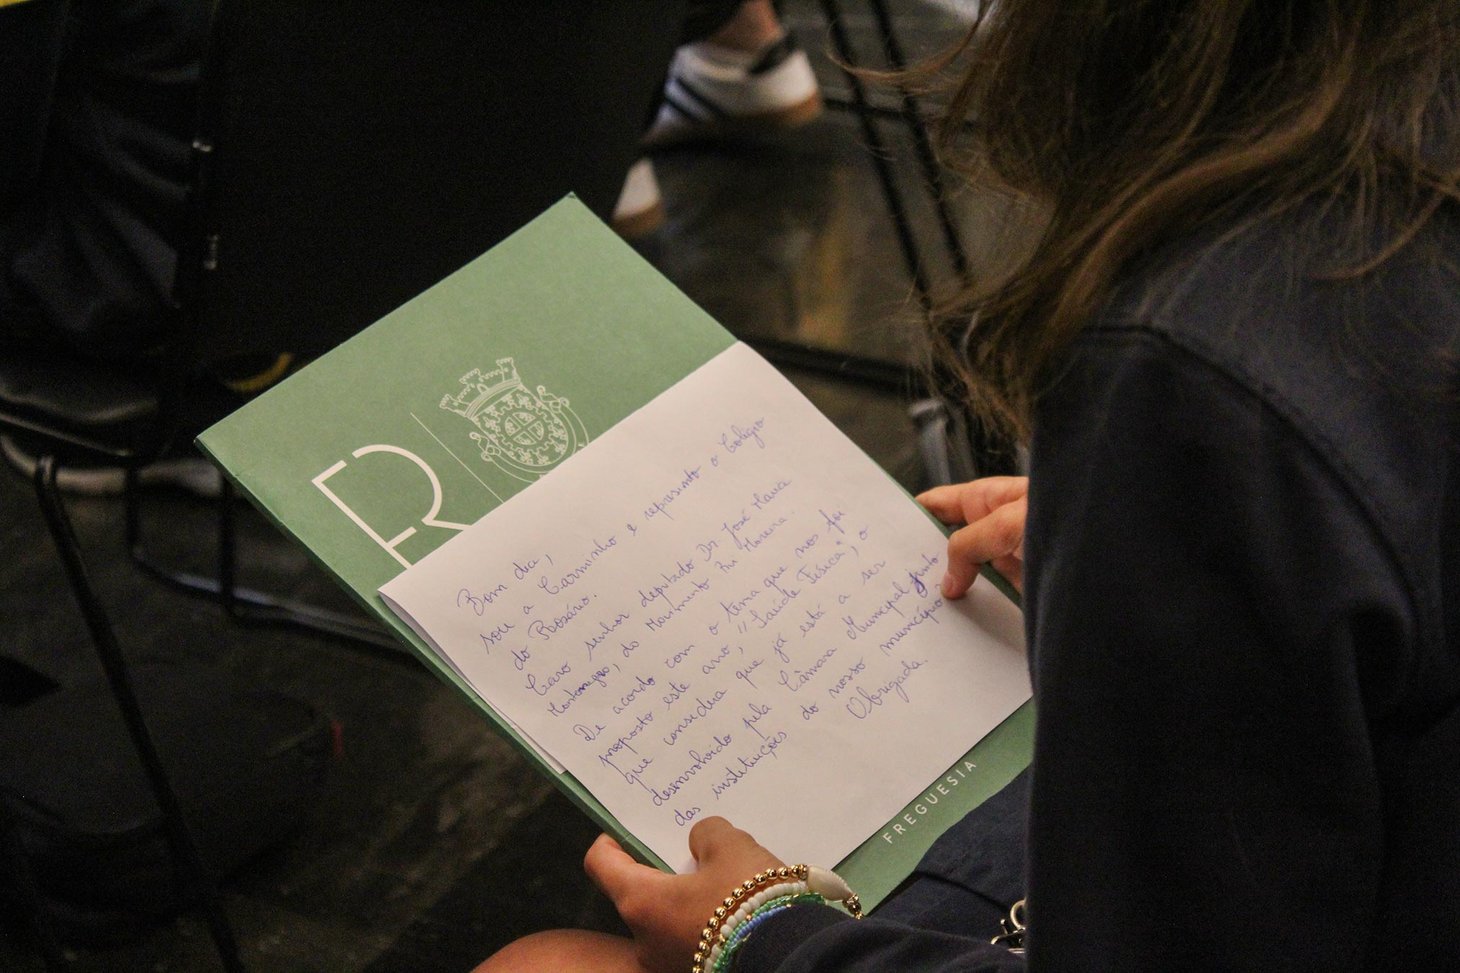 R
Bom dia,
sou a Carminho e represento o Colégio
do Rosário.
Caro senhor deputado Dr. José Maria
Montenegro, do Movimento Rui Moreira.
De acordo com o tema que nos foi
proposto este ano, "Saúde Física", o
que considera que já está a ser
desenvolvido pela Câmara Municipal junto
das instituições do nosso município.
Obrigada.
FREGUESIA